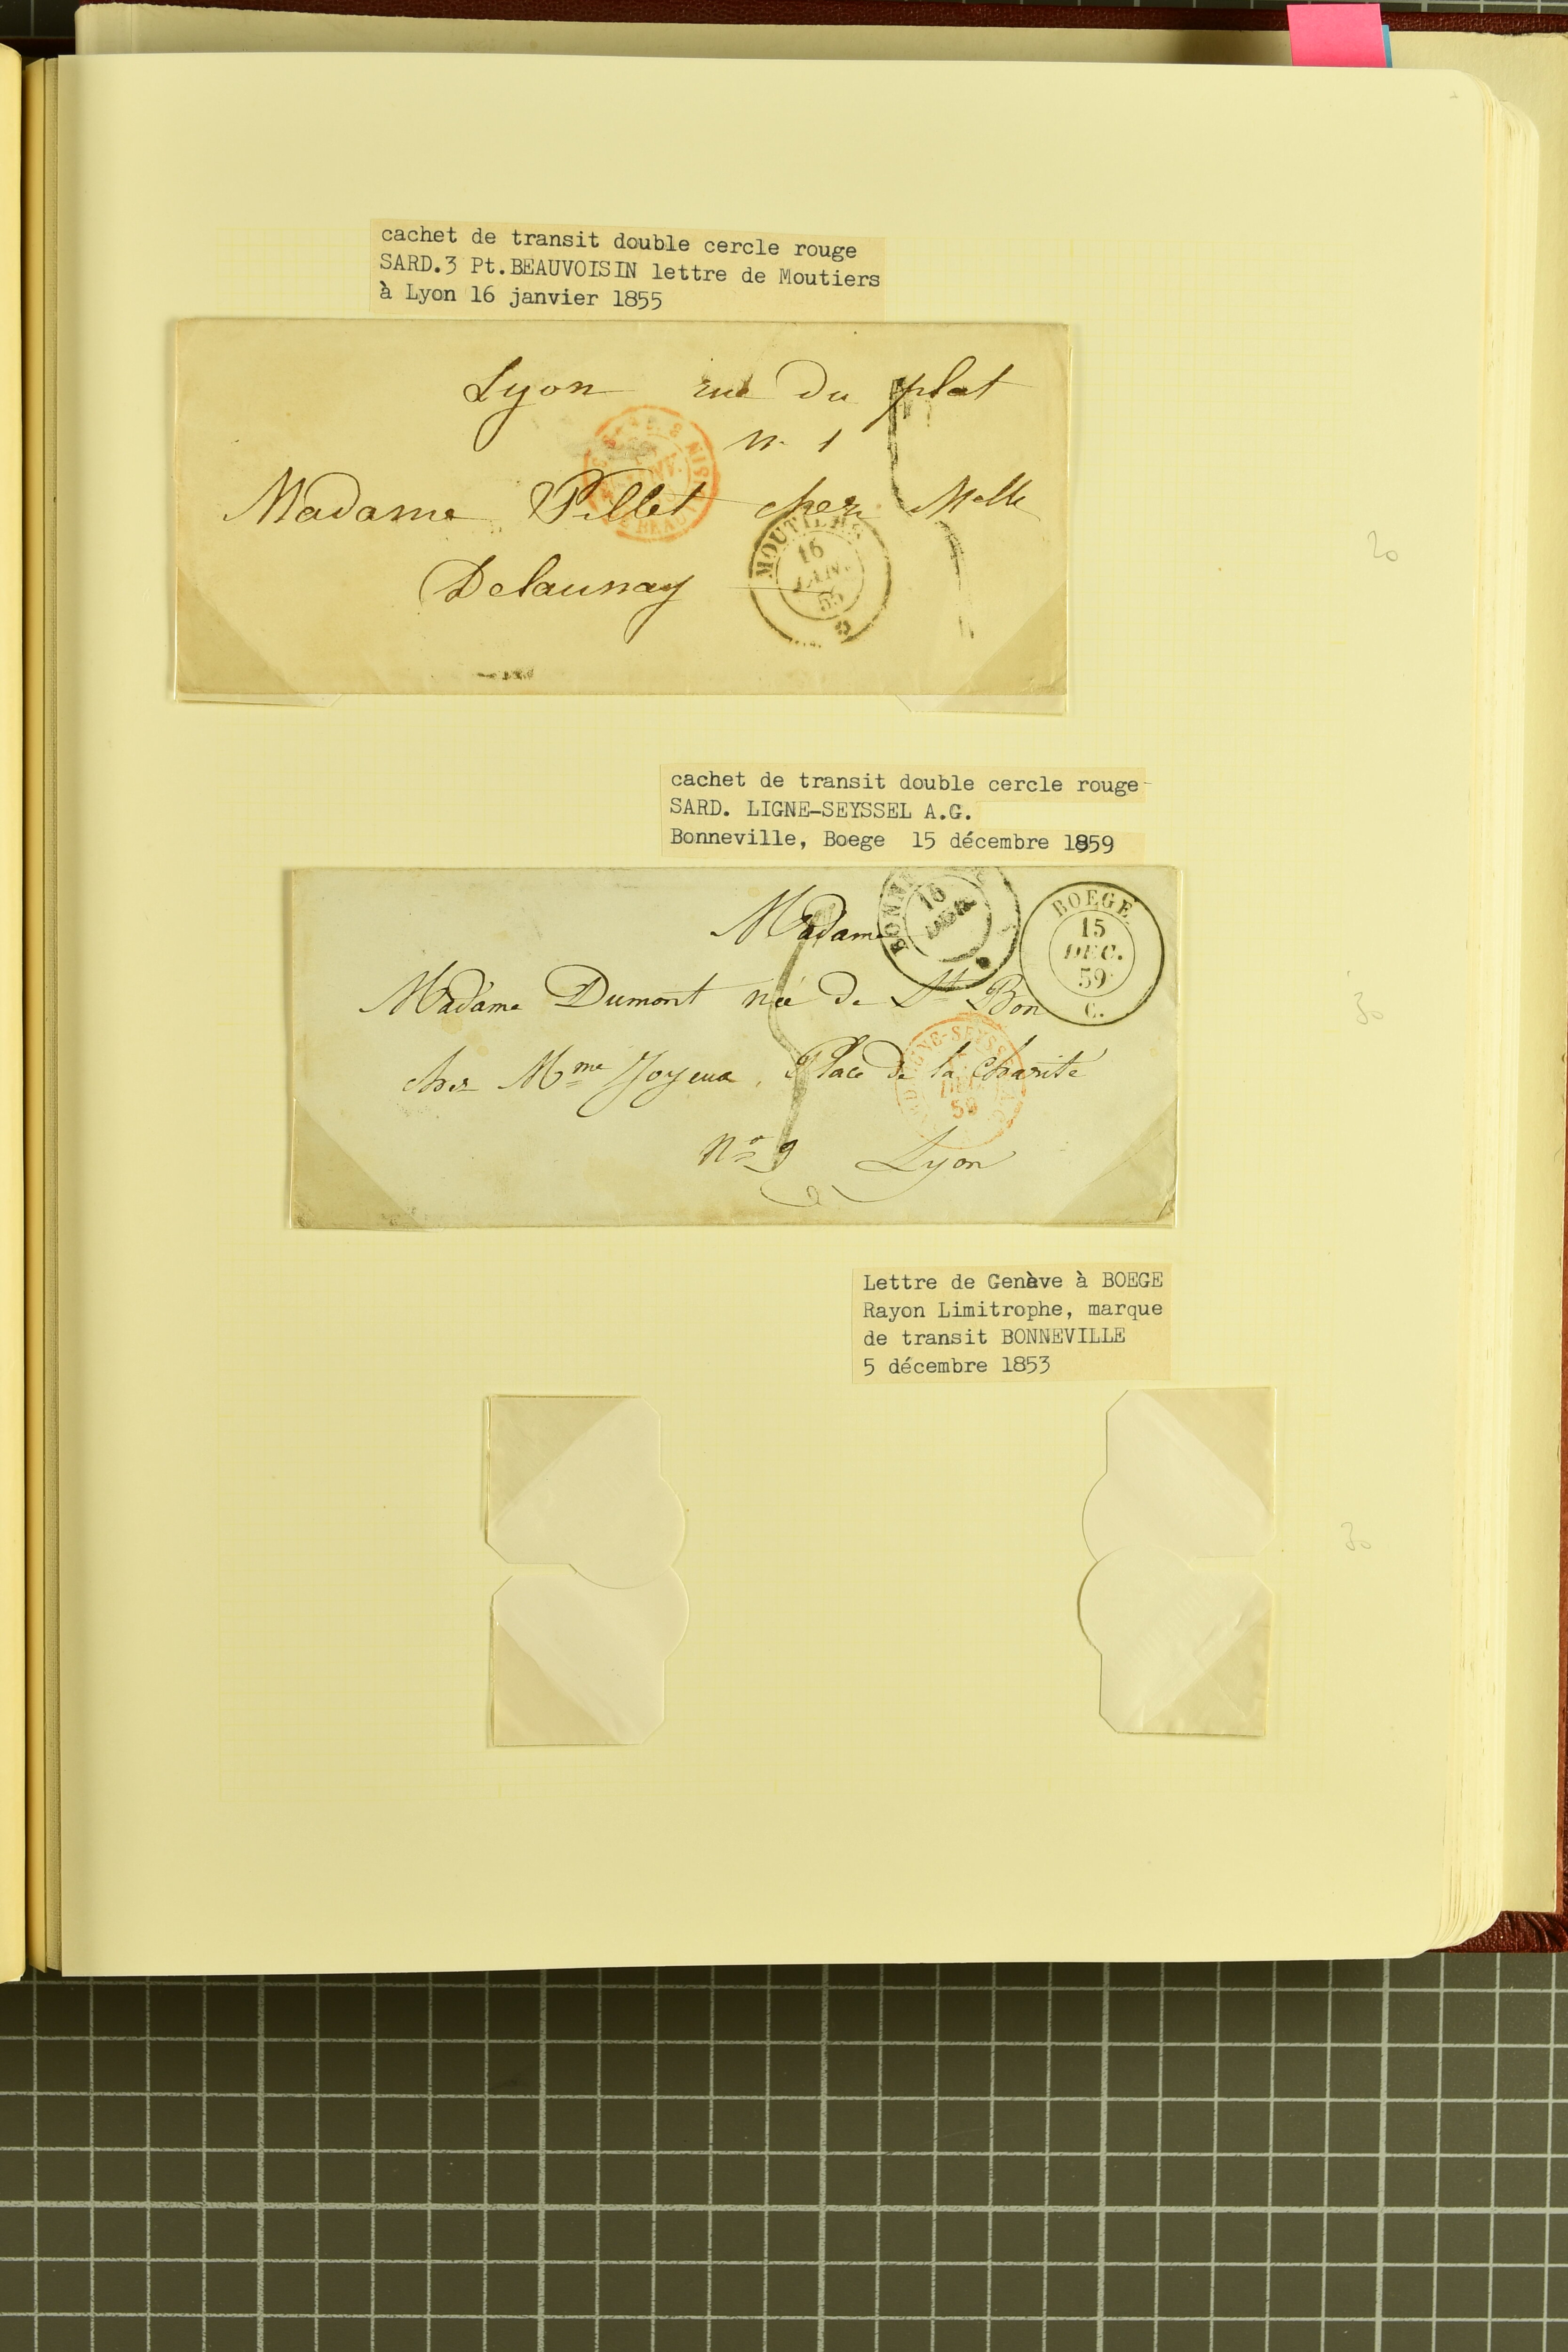 cachet de transit double cercle rouge
SARD.3 Pt.BEAUVOISIN lettre de Moutiers
à Lyon 16 janvier 1855
Lyon rue du plat
n. 1
Madame Pillet chez Melle
Delaunay
MOUTIERS
16
JANV.
55
20
cachet de transit double cercle rouge
SARD. LIGNE-SEYSSEL A.G.
Bonneville, Boege 15 décembre 1859
Madame
16
BOEGE
15
DEC.
59
C.
Madame Dumont née de St Bon
chez Mme Joyeux, Place de la Charité
DEC.
59
No 9 Lyon
30
Lettre de Genève à BOEGE
Rayon Limitrophe, marque
de transit BONNEVILLE
5 décembre 1853
30